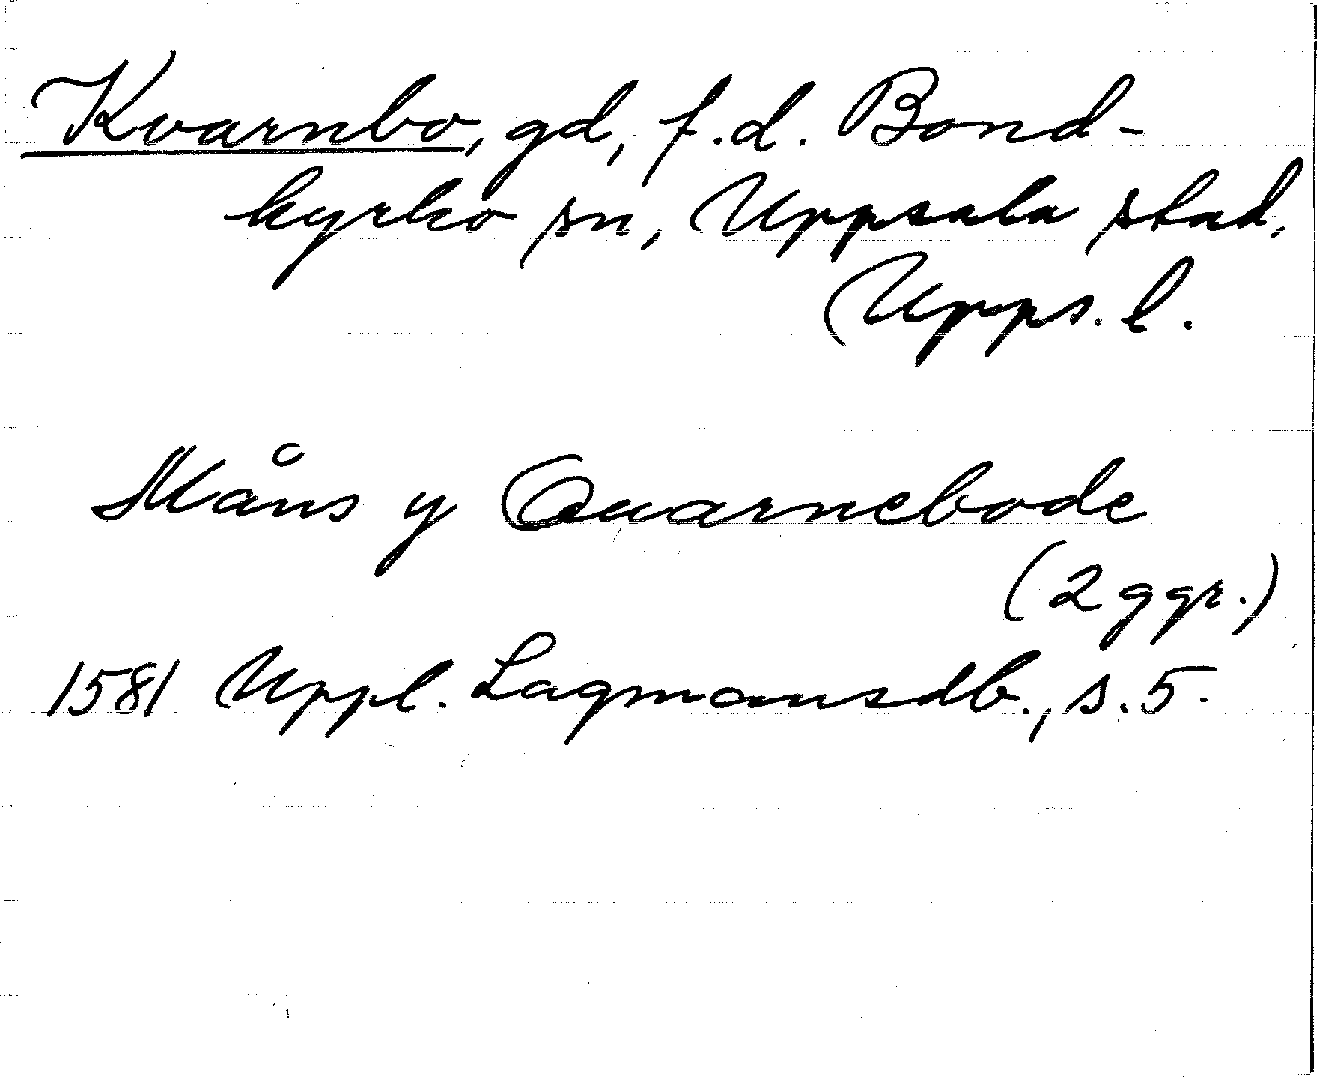 Kvarnbo, gd, f.d. Bond-
kyrko sn, Uppsala stad,
Upps. l.
Måns y Quarnebode
(2 ggr.)
1581 Uppl. Lagmansdb., s. 5.